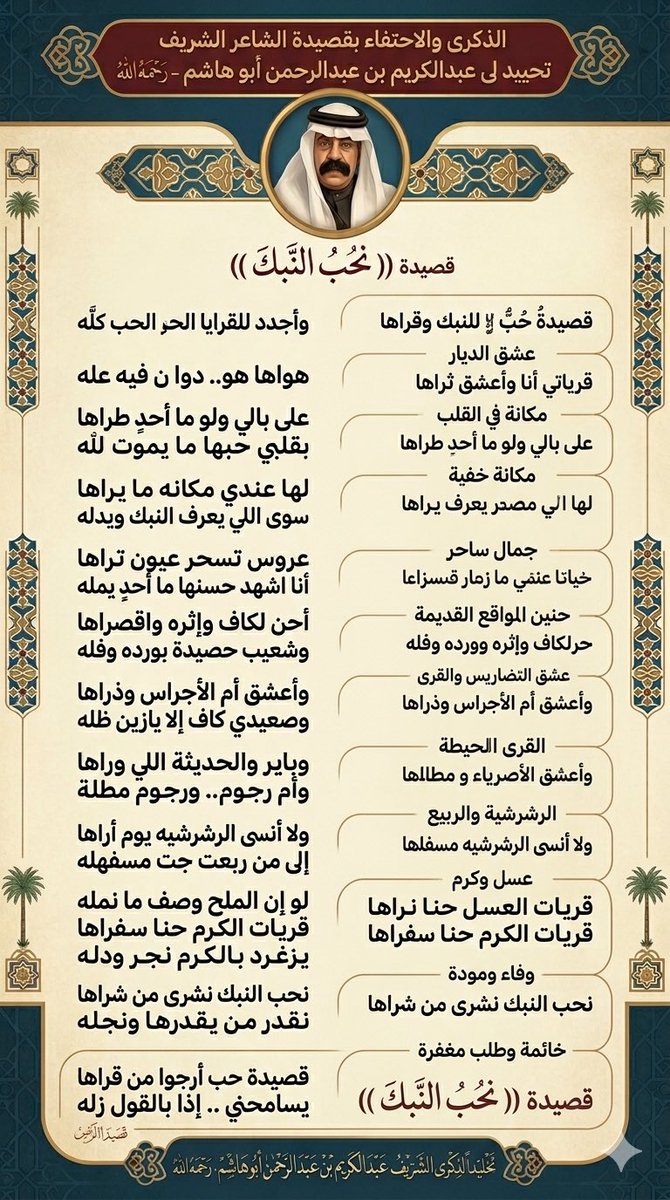 الذكرى والاحتفاء بقصيدة الشاعر الشريف
تحييد لى عبدالكريم بن عبدالرحمن أبو هاشم - رَحِمَهُ اللهُ
قصيدة (( نحُبُ النَّبكَ ))
قصيدةُ حُبُّ للنبك وقراها
وأجدد للقرايا الحر الحب كلَّه
عشق الديار
قرياتي أنا وأعشق ثراها
هواها هو.. دوا ن فيه عله
مكانة في القلب
على بالي ولو ما أحدٍ طراها
على بالي ولو ما أحدٍ طراها
بقلبي حبها ما يموت لله
مكانة خفية
لها الي مصدر يعرف يراها
لها عندي مكانه ما يراها
سوى اللي يعرف النبك ويدله
جمال ساحر
خياتا عنقي ما زمار قسزاعا
عروس تسحر عيون تراها
أنا اشهد حسنها ما أحدٍ يمله
حنين المواقع القديمة
حرلكاف وإثره وورده وفله
أحن لكاف وإثره واقصراها
وشعيب حصيدة بورده وفله
عشق التضاريس والقرى
وأعشق أم الأجراس وذراها
وأعشق أم الأجراس وذراها
وصعيدي كاف إلا يازين ظله
القرى الحيطة
وأعشق الأصرياء و مطالها
وباير والحديثة اللي وراها
وأم رجوم.. ورجوم مطلة
الرشرشية والربيع
ولا أنسى الرشرشيه مسفلها
ولا أنسى الرشرشيه يوم أراها
إلى من ربعت جت مسفهله
عسل وكرم
قريات العسل حنا نراها
قريات الكرم حنا سفراها
لو إن الملح وصف ما نمله
قريات الكرم حنا سفراها
يزغرد بالكرم نجر ودله
وفاء ومودة
نحب النبك نشرى من شراها
نحب النبك نشرى من شراها
نقدر من يقدرها ونجله
خائمة وطلب مغفرة
قصيدة (( نحُبُ النَّبكَ ))
قصيدة حب أرجوا من قراها
يسامحني .. إذا بالقول زله
تخليداً لذكرى الشريف عبدالكريم بن عبدالرحمن أبو هاشم - رَحِمَهُ الله